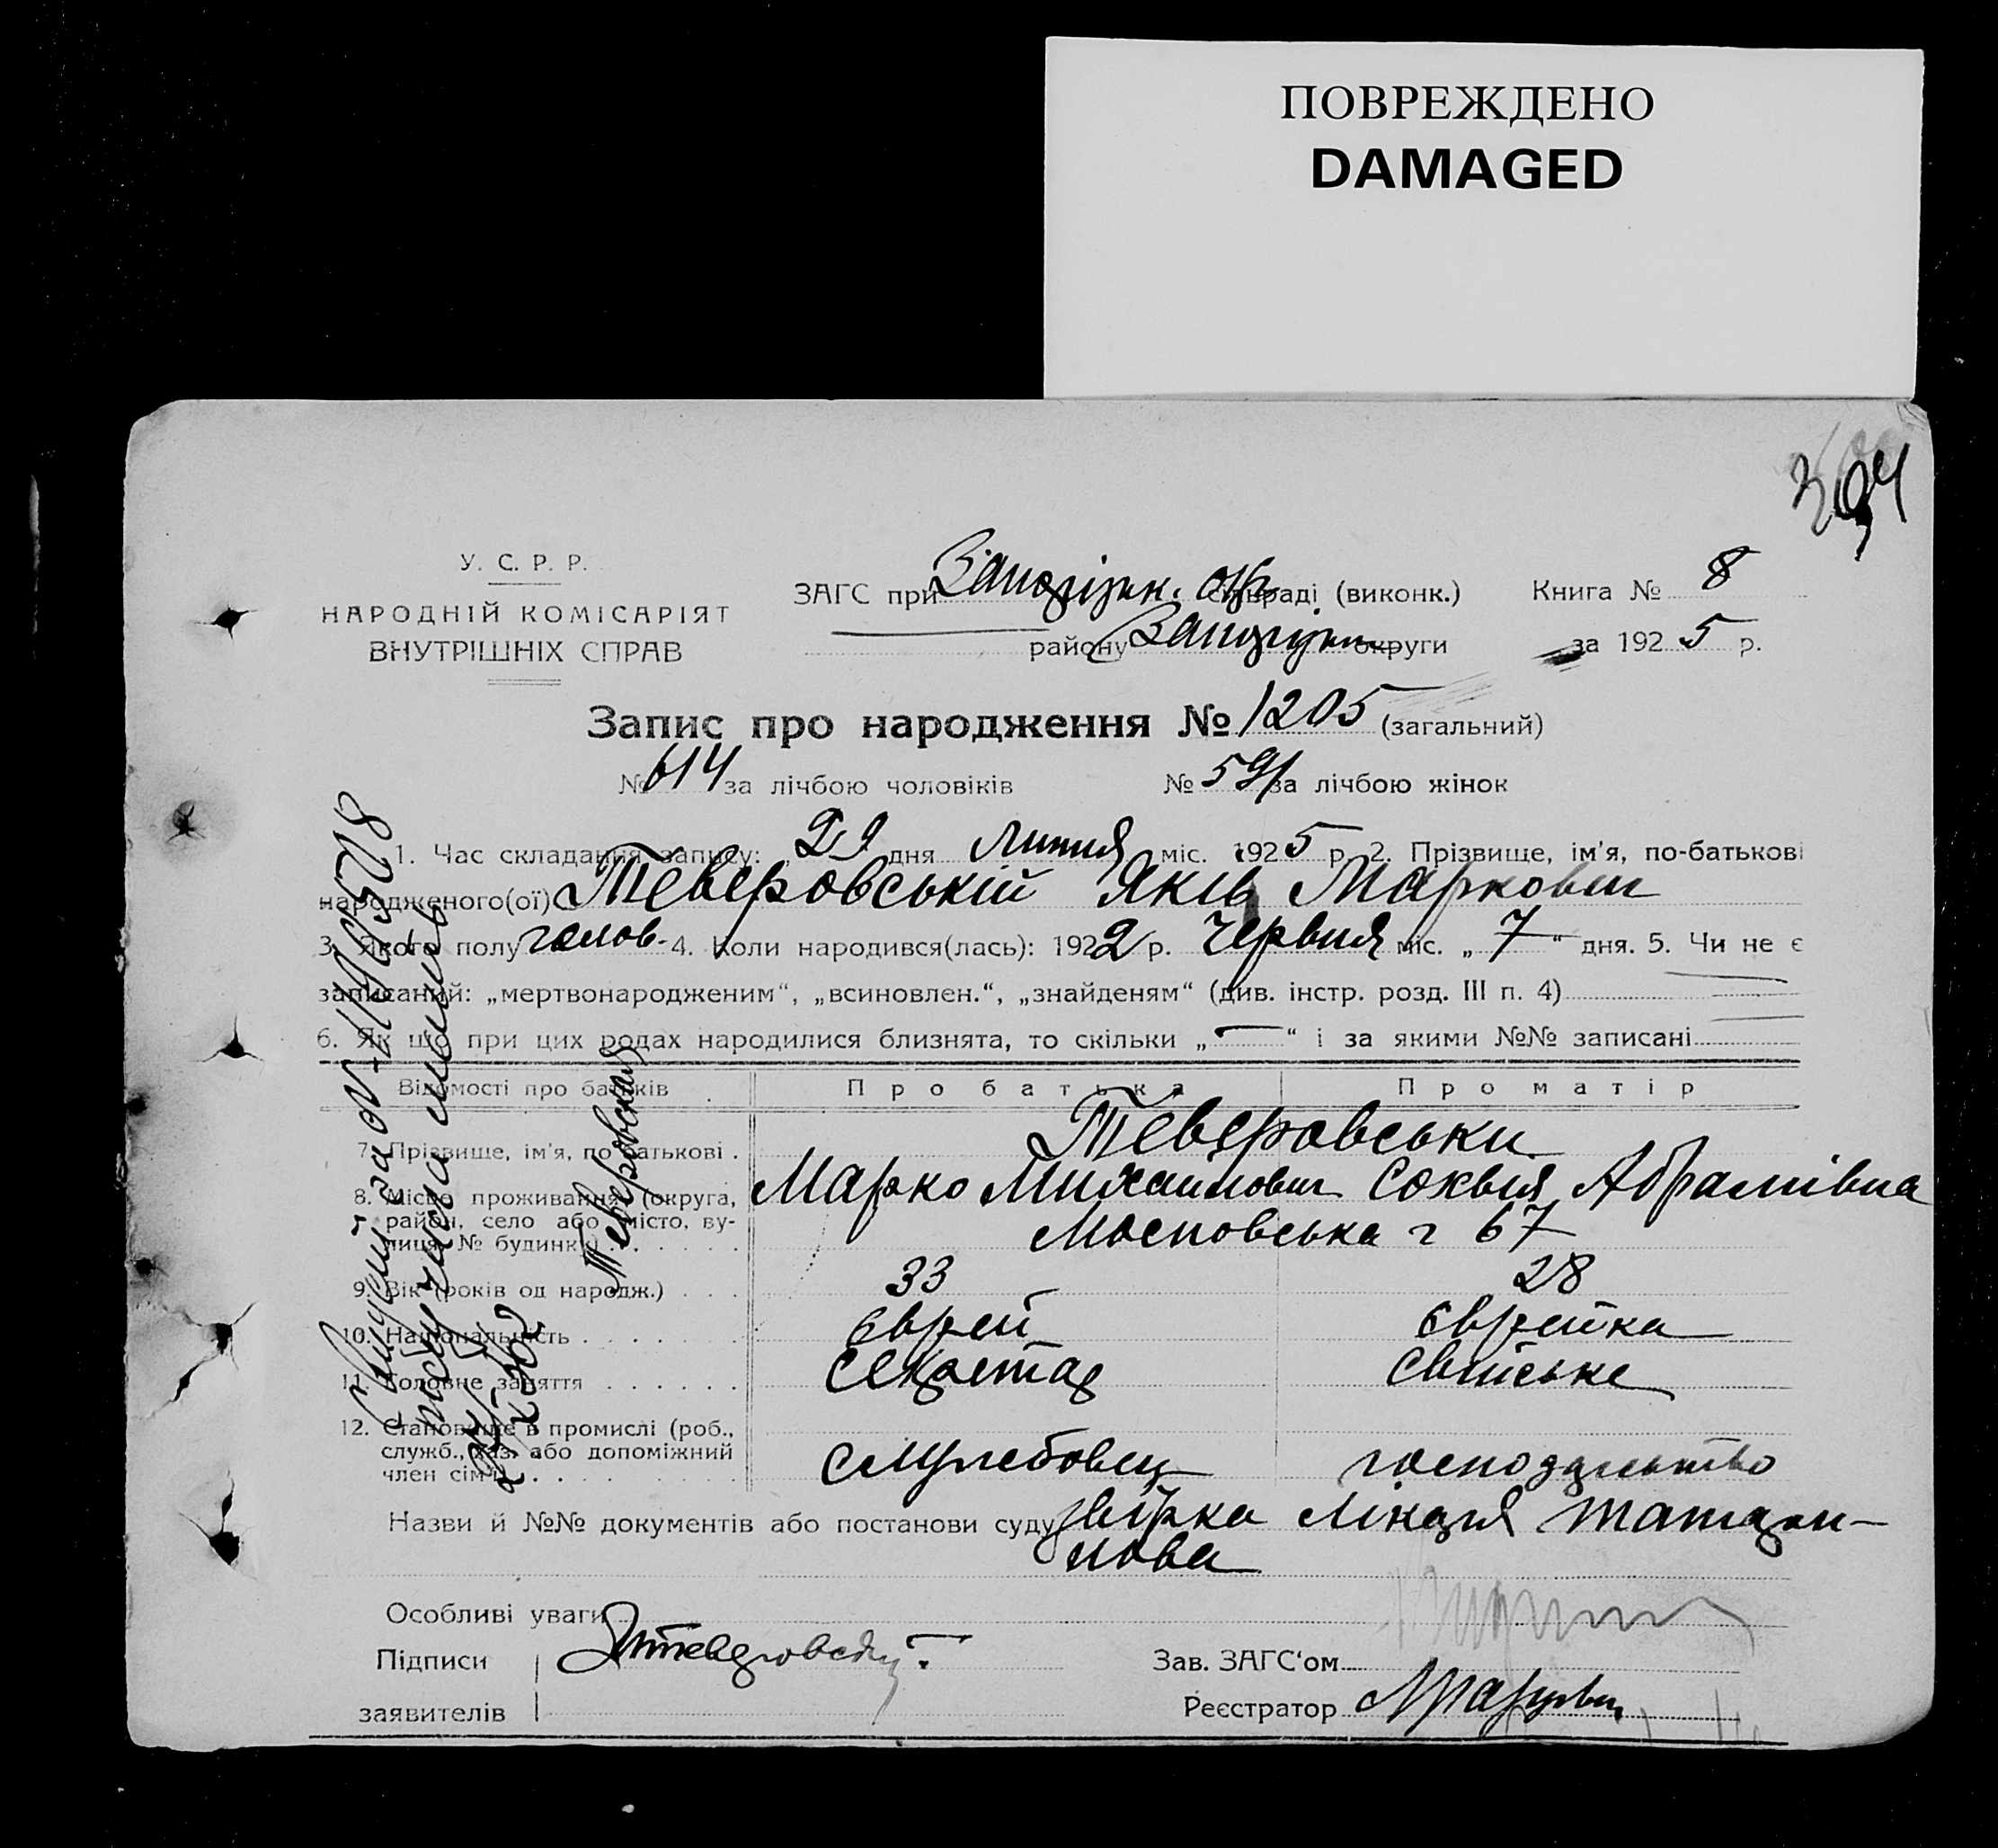 ПОВРЕЖДЕНО
DAMAGED
394
У. С. Р. Р.
НАРОДНІЙ КОМІСАРІЯТ
ВНУТРІШНІХ СПРАВ
ЗАГС при Запоріжк. окр (виконк.)
району Запоріжк округи
Книга № 8
за 1925 р.
Запис про народження № 1205 (загальний)
№ 614 за лічбою чоловіків № 591 за лічбою жінок
1. Час складання запису: „29 дня Липня міс. 1925 р. 2. Прізвище, ім'я, по-батькові
народженого(ої) Тевєровській Яків Маркович
3. Якого полу чолов. 4. Коли народився(лась): 1922 р. Червня міс. „7“ дня. 5. Чи не є
записаний: „мертвонародженим“, „всиновлен.“, „знайденям“ (див. інстр. розд. III п. 4)
6. Як що при цих родах народилися близнята, то скільки „—“ і за якими №№ записані
Відомості про батьків Про батька Про матір
7. Прізвище, ім'я, по батькові . Тевєровськи
Марко Михайлович Абрамівна
8. Місце проживання (округа,
район, село або місто, ву-
лиця, № будинку) Московська 67
9. Вік (років од народж.) 33 28
10. Національність Єврей Єврейка
11. Головне заняття Секретар Свійське
12. Становище в промислі (роб.,
служб., хаз. або допоміжний
член сім'ї) Служебовец господарьство
Назви й №№ документів або постанови суду Лікаря
Особливі уваги
Підписи
заявителів
Зав. ЗАГС‘ом
Реєстратор
получила
Тевєровская